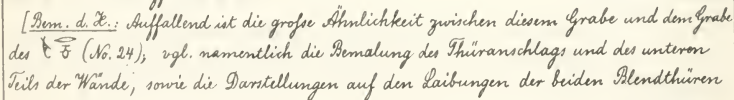 [Bem. d. H.: Auffallend ist die große Ähnlichkeit zwischen diesem Grabe und dem Grabe
des (No. 24); vgl. namentlich die Bemalung des Thüranschlags und des unteren
Teils der Wände, sowie die Darstellungen auf den Laibungen der beiden Blendthüren